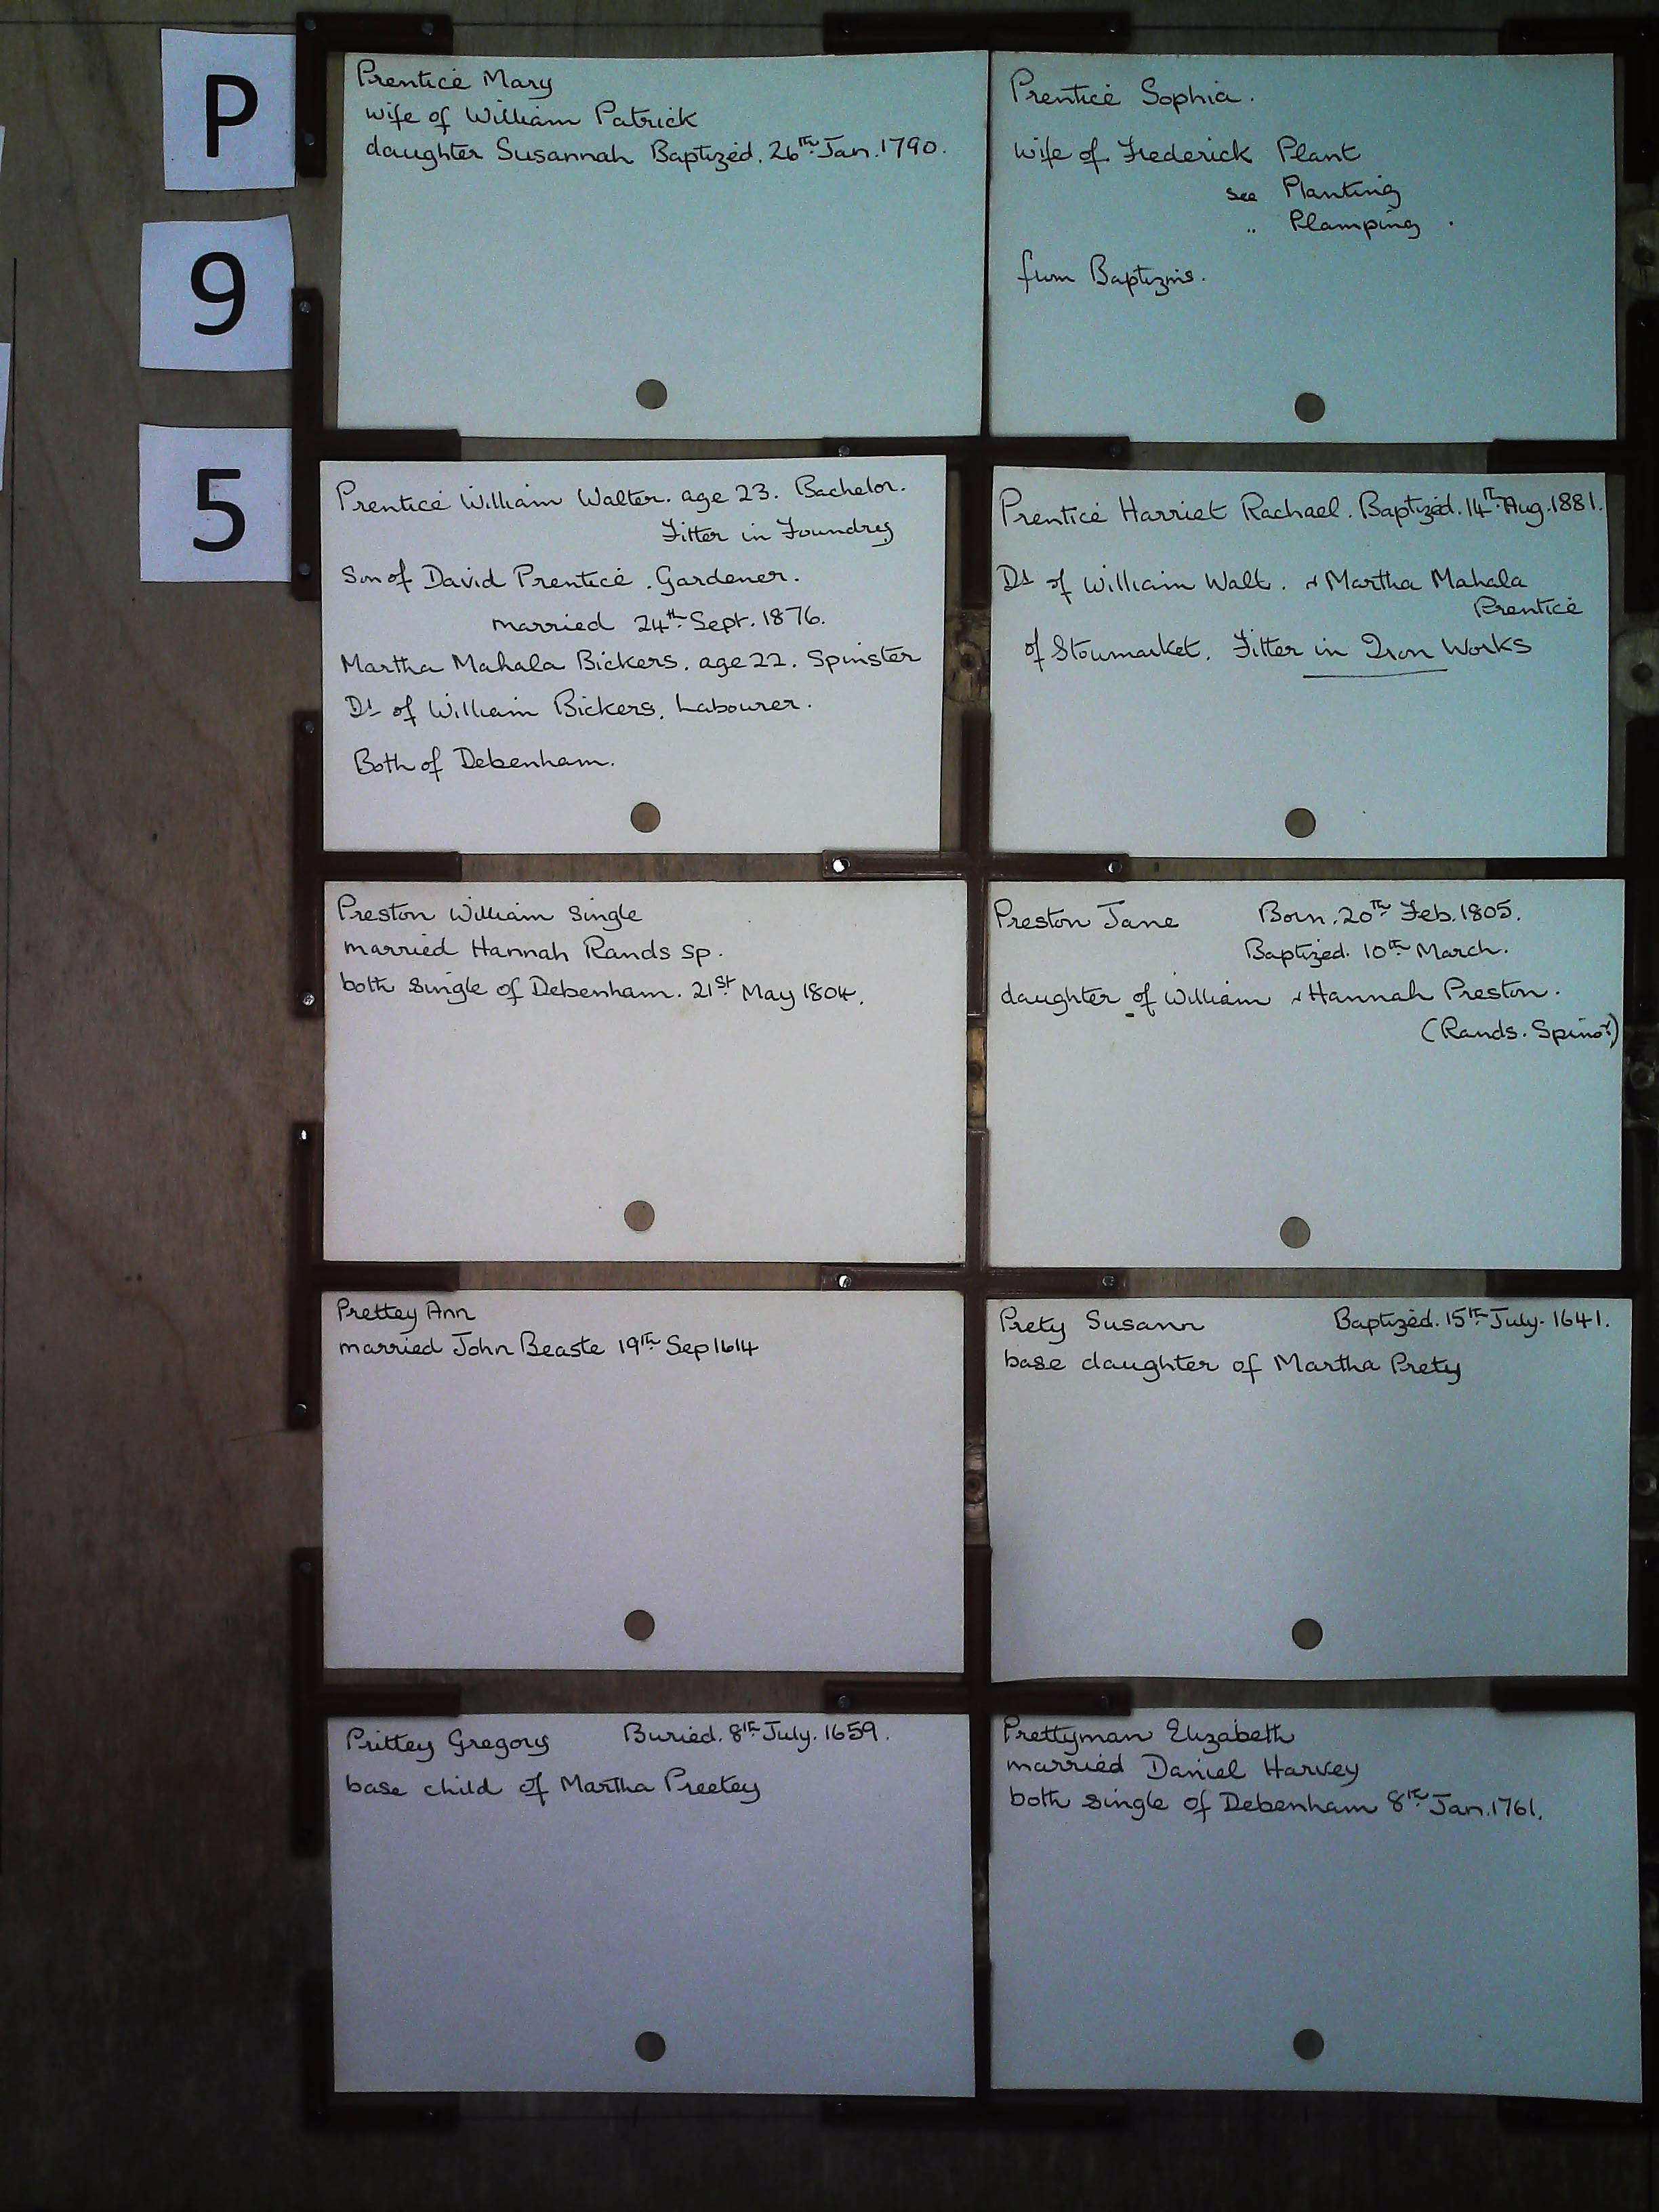 P
9
5
Prentice Mary
wife of William Patrick
daughter Susannah Baptized. 26th Jan. 1790.
Prentice Sophia.
wife of Frederick Plant
see Planting
" Plamping.
from Baptizms.
Prentice William Walter. age 23. Bachelor.
Fitter in Foundry
Son of David Prentice. Gardener.
married 24th Sept. 1876.
Martha Mahala Bickers. age 22. Spinster
Dt of William Bickers. Labourer.
Both of Debenham.
Prentice Harriet Rachael. Baptized. 14th Aug. 1881.
Dt of William Walt. & Martha Mahala
Prentice
of Stowmarket. Fitter in Iron Works
Preston William Single
married Hannah Rands sp.
both single of Debenham. 21st May 1804.
Preston Jane Born. 20th Feb. 1805.
Baptized. 10th March.
daughter of William & Hannah Preston.
(Rands. Spinsr)
Prettey Ann
married John Beaste 19th Sep 1614
Prety Susann Baptized. 15th July. 1641.
base daughter of Martha Prety
Prittey Gregory Buried. 8th July. 1659.
base child of Martha Preetey
Prettyman Elizabeth
married Daniel Harvey
both single of Debenham 8th Jan. 1761.